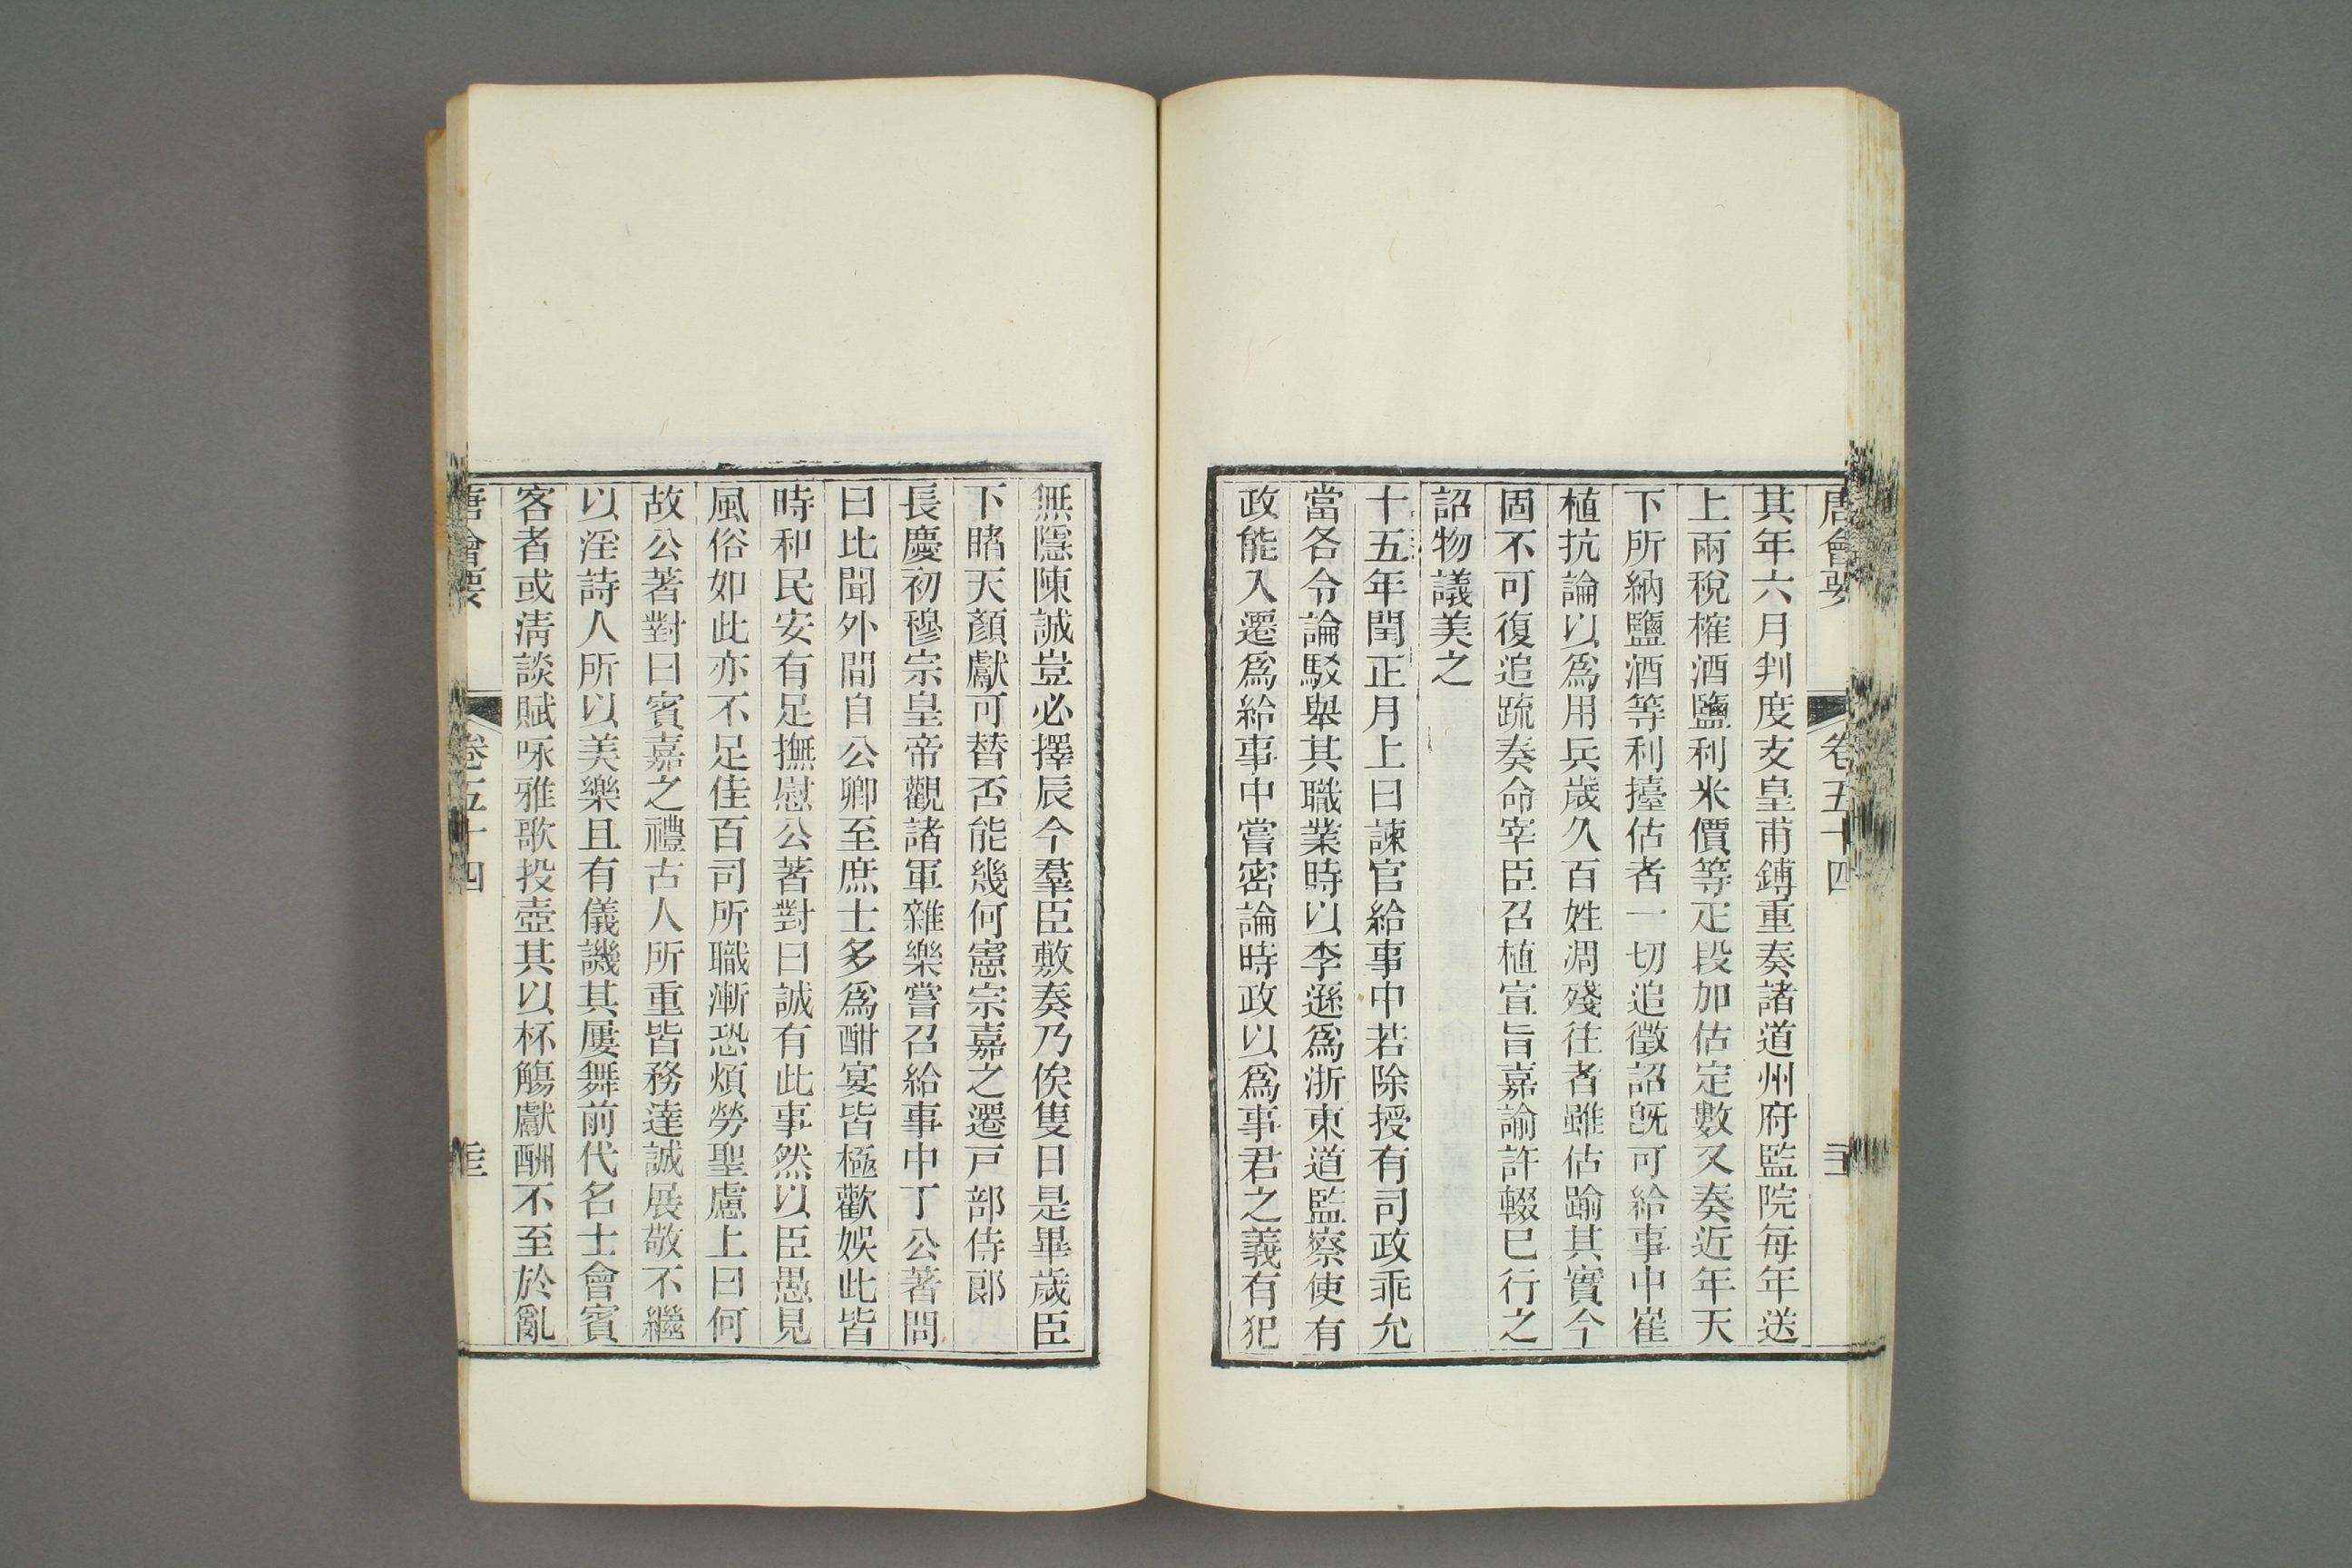 唐會要 卷五十四
其年六月判度支皇甫鎛重奏諸道州府監院每年送
上兩稅榷酒鹽利米價等疋段加估定數又奏近年天
下所納鹽酒等利擡估者一切追徵詔旣可給事中崔
植抗論以爲用兵歲久百姓凋殘往者雖估踰其實今
固不可復追疏奏命宰臣召植宣旨嘉諭許輟已行之
詔物議美之
十五年閏正月上曰諫官給事中若除授有司政乖允
當各令論駁舉其職業時以李遜爲浙東道監察使有
政能入遷爲給事中嘗密論時政以爲事君之義有犯
無隱陳誠豈必擇辰今羣臣敷奏乃俟隻日是畢歲臣
下睹天顏獻可替否能幾何憲宗嘉之遷戸部侍郞
長慶初穆宗皇帝觀諸軍雜樂嘗召給事中丁公著問
曰比聞外間自公卿至庶士多爲酣宴皆極歡娛此皆
時和民安有足撫慰公著對曰誠有此事然以臣愚見
風俗如此亦不足佳百司所職漸恐煩勞聖慮上曰何
故公著對曰賓嘉之禮古人所重皆務達誠展敬不繼
以淫詩人所以美樂且有儀譏其屢舞前代名士會賓
客者或淸談賦咏雅歌投壺其以杯觴獻酬不至於亂
唐會要 卷五十四